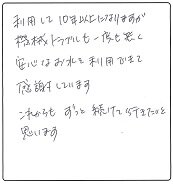 利用して10年以上になりますが
機械トラブルも一度も無く
安心なお水を利用できて
感謝しています
これからも ずっと 続けて行きたいと
思います